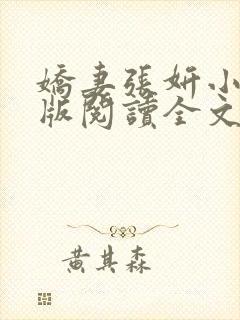 嬌妻張妍小
版閱讀全文
黃其森